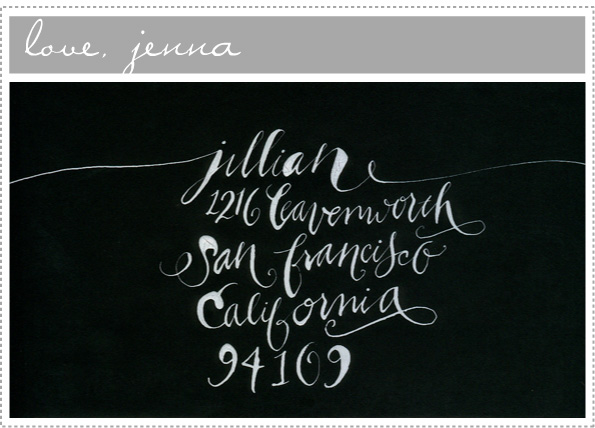 love, jenna
jillian
1216 leavenworth
san francisco
California
94109